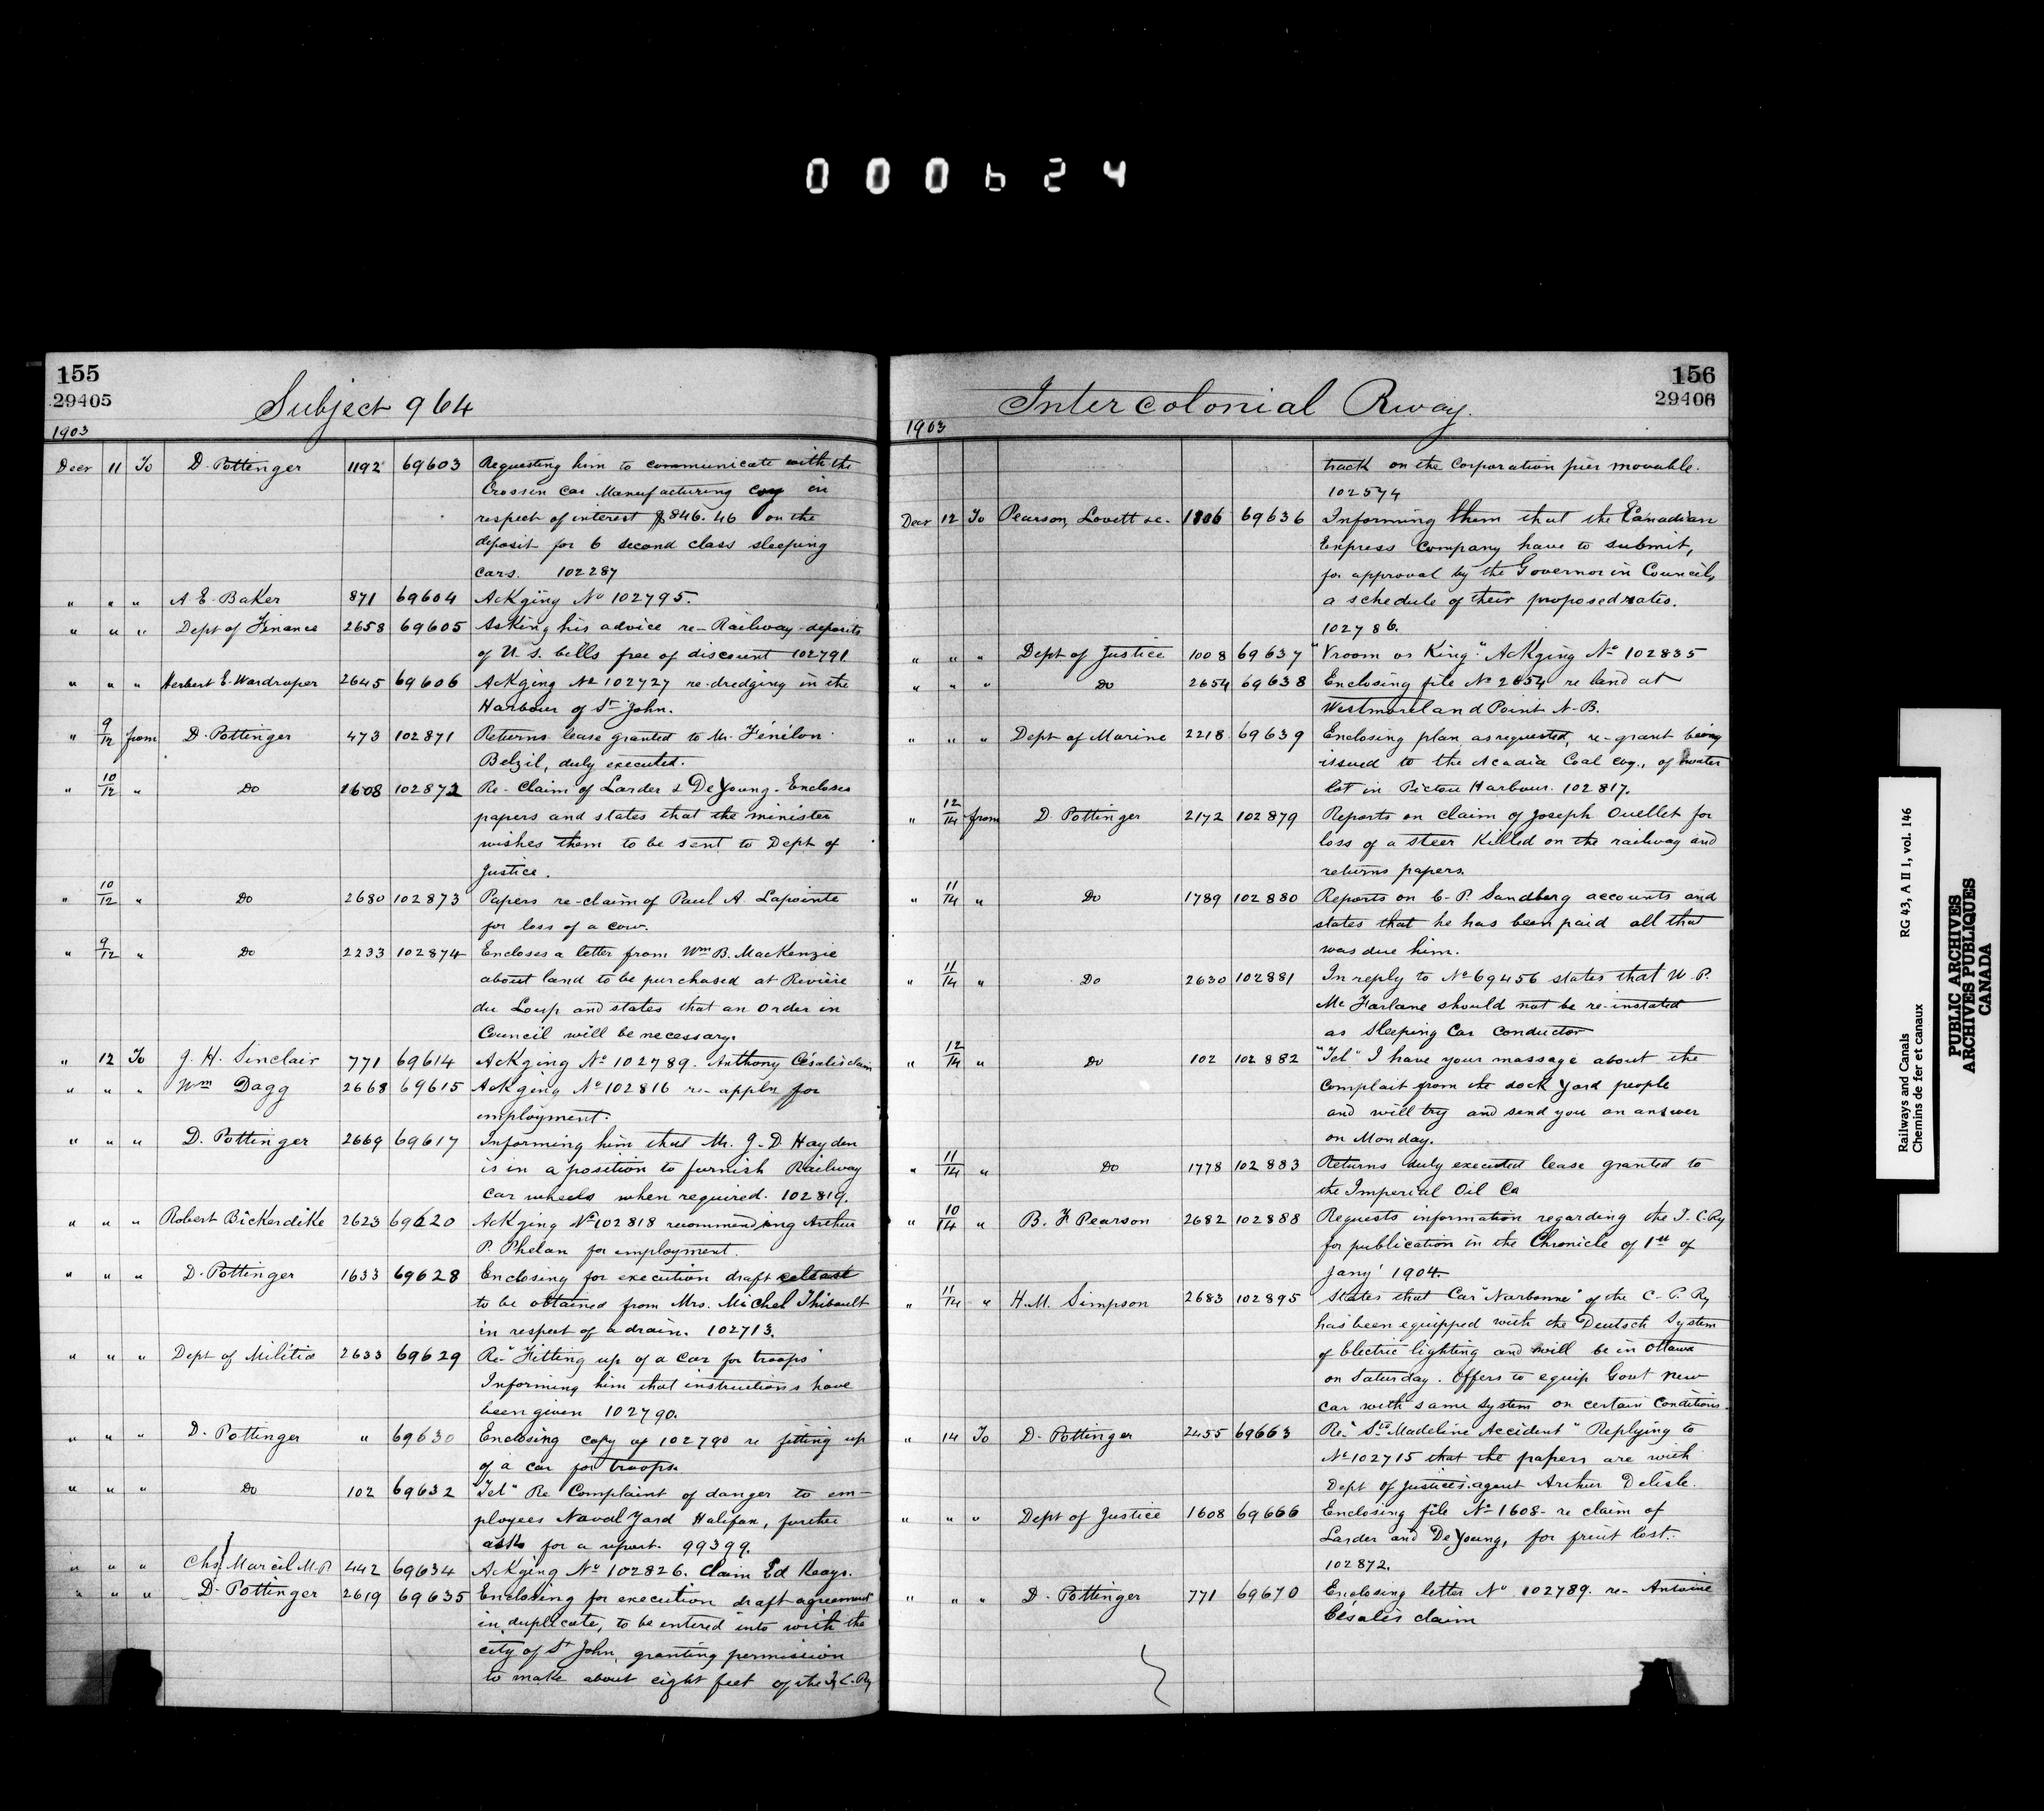 000624
155
29405
Subject 964
1903
Decr 11 To D. Pottinger 1192 69603 Requesting him to communicate with the
Crossen Car Manufacturing Coy in
respect of interest $846.46 on the
deposit for 6 second class sleeping
cars. 102287
" " " A. E. Baker 871 69604 Ackging No 102795.
" " " Dept of Finance 2658 69605 Asking his advice re- Railway deposits
of U. S. bills free of discount 102791
" " " Herbert E. Wardroper 2645 69606 Ackging No 102727 re-dredging in the
Harbour of St John.
" 9/12 from D. Pottinger 473 102871 Returns lease granted to Mr. Fénélon
Belzil, duly executed.
" 10/12 " Do 1608 102872 Re- Claim of Larder & DeYoung. Encloses
papers and states that the minister
wishes them to be sent to Dept of
Justice.
" 10/12 " Do 2680 102873 Papers re-claim of Paul A. Lapointe
for loss of a cow.
" 9/12 " Do 2233 102874 Encloses a letter from Wm B. MacKenzie
about land to be purchased at Rivière
du Loup and states that an Order in
Council will be necessary.
" 12 To J. H. Sinclair 771 69614 Ackging No 102789. Anthony Césalis claim
" " " Wm Dagg 2668 69615 Ackging No 102816 re- appln for
employment.
" " " D. Pottinger 2669 69617 Informing him that Mr. J. D. Hayden
is in a position to furnish Railway
car wheels when required. 102819.
" " " Robert Bickerdike 2623 69620 Ackging No 102818 recommending Arthur
P. Phelan for employment.
" " " D. Pottinger 1633 69628 Enclosing for execution draft release
to be obtained from Mrs. Michel Thibault
in respect of a drain. 102713.
" " " Dept of Militia 2633 69629 Re- "Fitting up of a car for troops"
Informing him that instructions have
been given 102790.
" " " D. Pottinger " 69630 Enclosing copy of 102790 re fitting up
of a car for troops.
" " " Do 102 69632 "Tel" Re Complaint of danger to em-
ployees Naval Yard Halifax, further
asks for a report. 99399.
" " " Chs Marcil M.P 442 69634 Ackging No 102826. Claim Ed Keays.
" " " D. Pottinger 2619 69635 Enclosing for execution draft agreement
in duplicate, to be entered into with the
city of St John, granting permission
to make about eight feet of the I. C. Ry
156
29406
Intercolonial Rway.
1903
track on the Corporation pier movable.
102574
Decr 12 To Pearson, Lovett &c. 1806 69636 Informing them that the Canadian
Express Company have to submit,
for approval by the Governor in Council,
a schedule of their proposed rates.
102786.
" " " Dept of Justice 1008 69637 "Vroom vs King." Ackging No 102835
" " " Do 2654 69638 Enclosing file No 2654 re land at
Westmoreland Point N.B.
" " " Dept of Marine 2218 69639 Enclosing plan, as requested, re-grant being
issued to the Acadia Coal Coy., of water
lot in Pictou Harbour. 102817.
" 12/14 from D. Pottinger 2172 102879 Reports on claim of Joseph Ouellet for
loss of a steer killed on the railway and
returns papers.
" 11/14 " Do 1789 102880 Reports on C. P. Sandberg accounts and
states that he has been paid all that
was due him.
" 11/14 " Do 2630 102881 In reply to No 69456 states that W. P.
McFarlane should not be re-instated
as Sleeping Car Conductor
" 12/14 " Do 102 102882 "Tel" I have your massage about the
complait from the dock yard people
and will try and send you an answer
on Monday.
" 11/14 " Do 1778 102883 Returns duly executed lease granted to
the Imperial Oil Co
" 10/14 " B. F. Pearson 2682 102888 Requests information regarding the I. C. Ry
for publication in the Chronicle of 1st of
Jany' 1904.
" 11/14 " H.M. Simpson 2683 102895 States that Car "Narbonne" of the C. P. Ry
has been equipped with the Deutsch System
of Electric lighting and will be in Ottawa
on Saturday. Offers to equip Govt new
car with same system on certain conditions.
" 14 To D. Pottinger 2455 69663 Re- "Ste Madeline Accident" Replying to
No 102715 that the papers are with
Dept of Justices agent Arthur Delisle.
" " " Dept of Justice 1608 69666 Enclosing file No 1608- re claim of
Larder and DeYoung, for fruit lost.
102872.
" " " D. Pottinger 771 69670 Enclosing letter No 102789. re- Antoine
Césalis claim
Railways and Canals RG 43, A II 1, vol. 146
Chemins de fer et canaux
PUBLIC ARCHIVES
ARCHIVES PUBLIQUES
CANADA